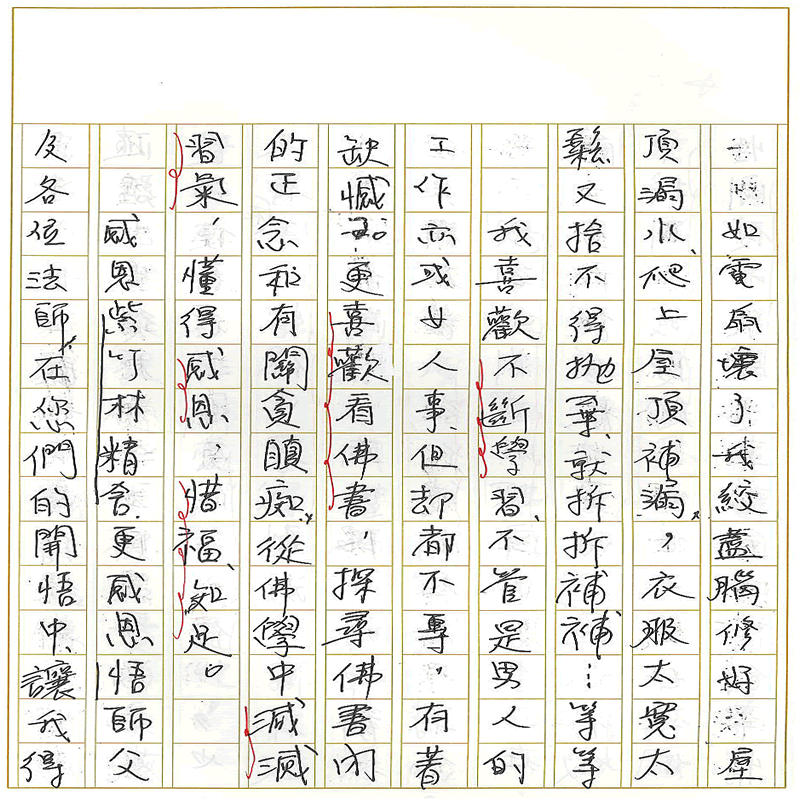 如電扇壞了我絞盡腦修好屋
頂漏水、爬上屋頂補漏，衣服太寬太
鬆又捨不得拋棄、就拆拆補補…等等
我喜歡不斷學習、不管是男人的
工作亦或女人事、但却都不專，有著
缺憾。更喜歡看佛書，探尋佛書內
的正念和有關貪瞋痴，從佛學中減滅
習氣，懂得感恩，惜福、知足。
感恩紫竹林精舍.更感恩悟師父
及各位法師，在您們的開悟中、讓我得